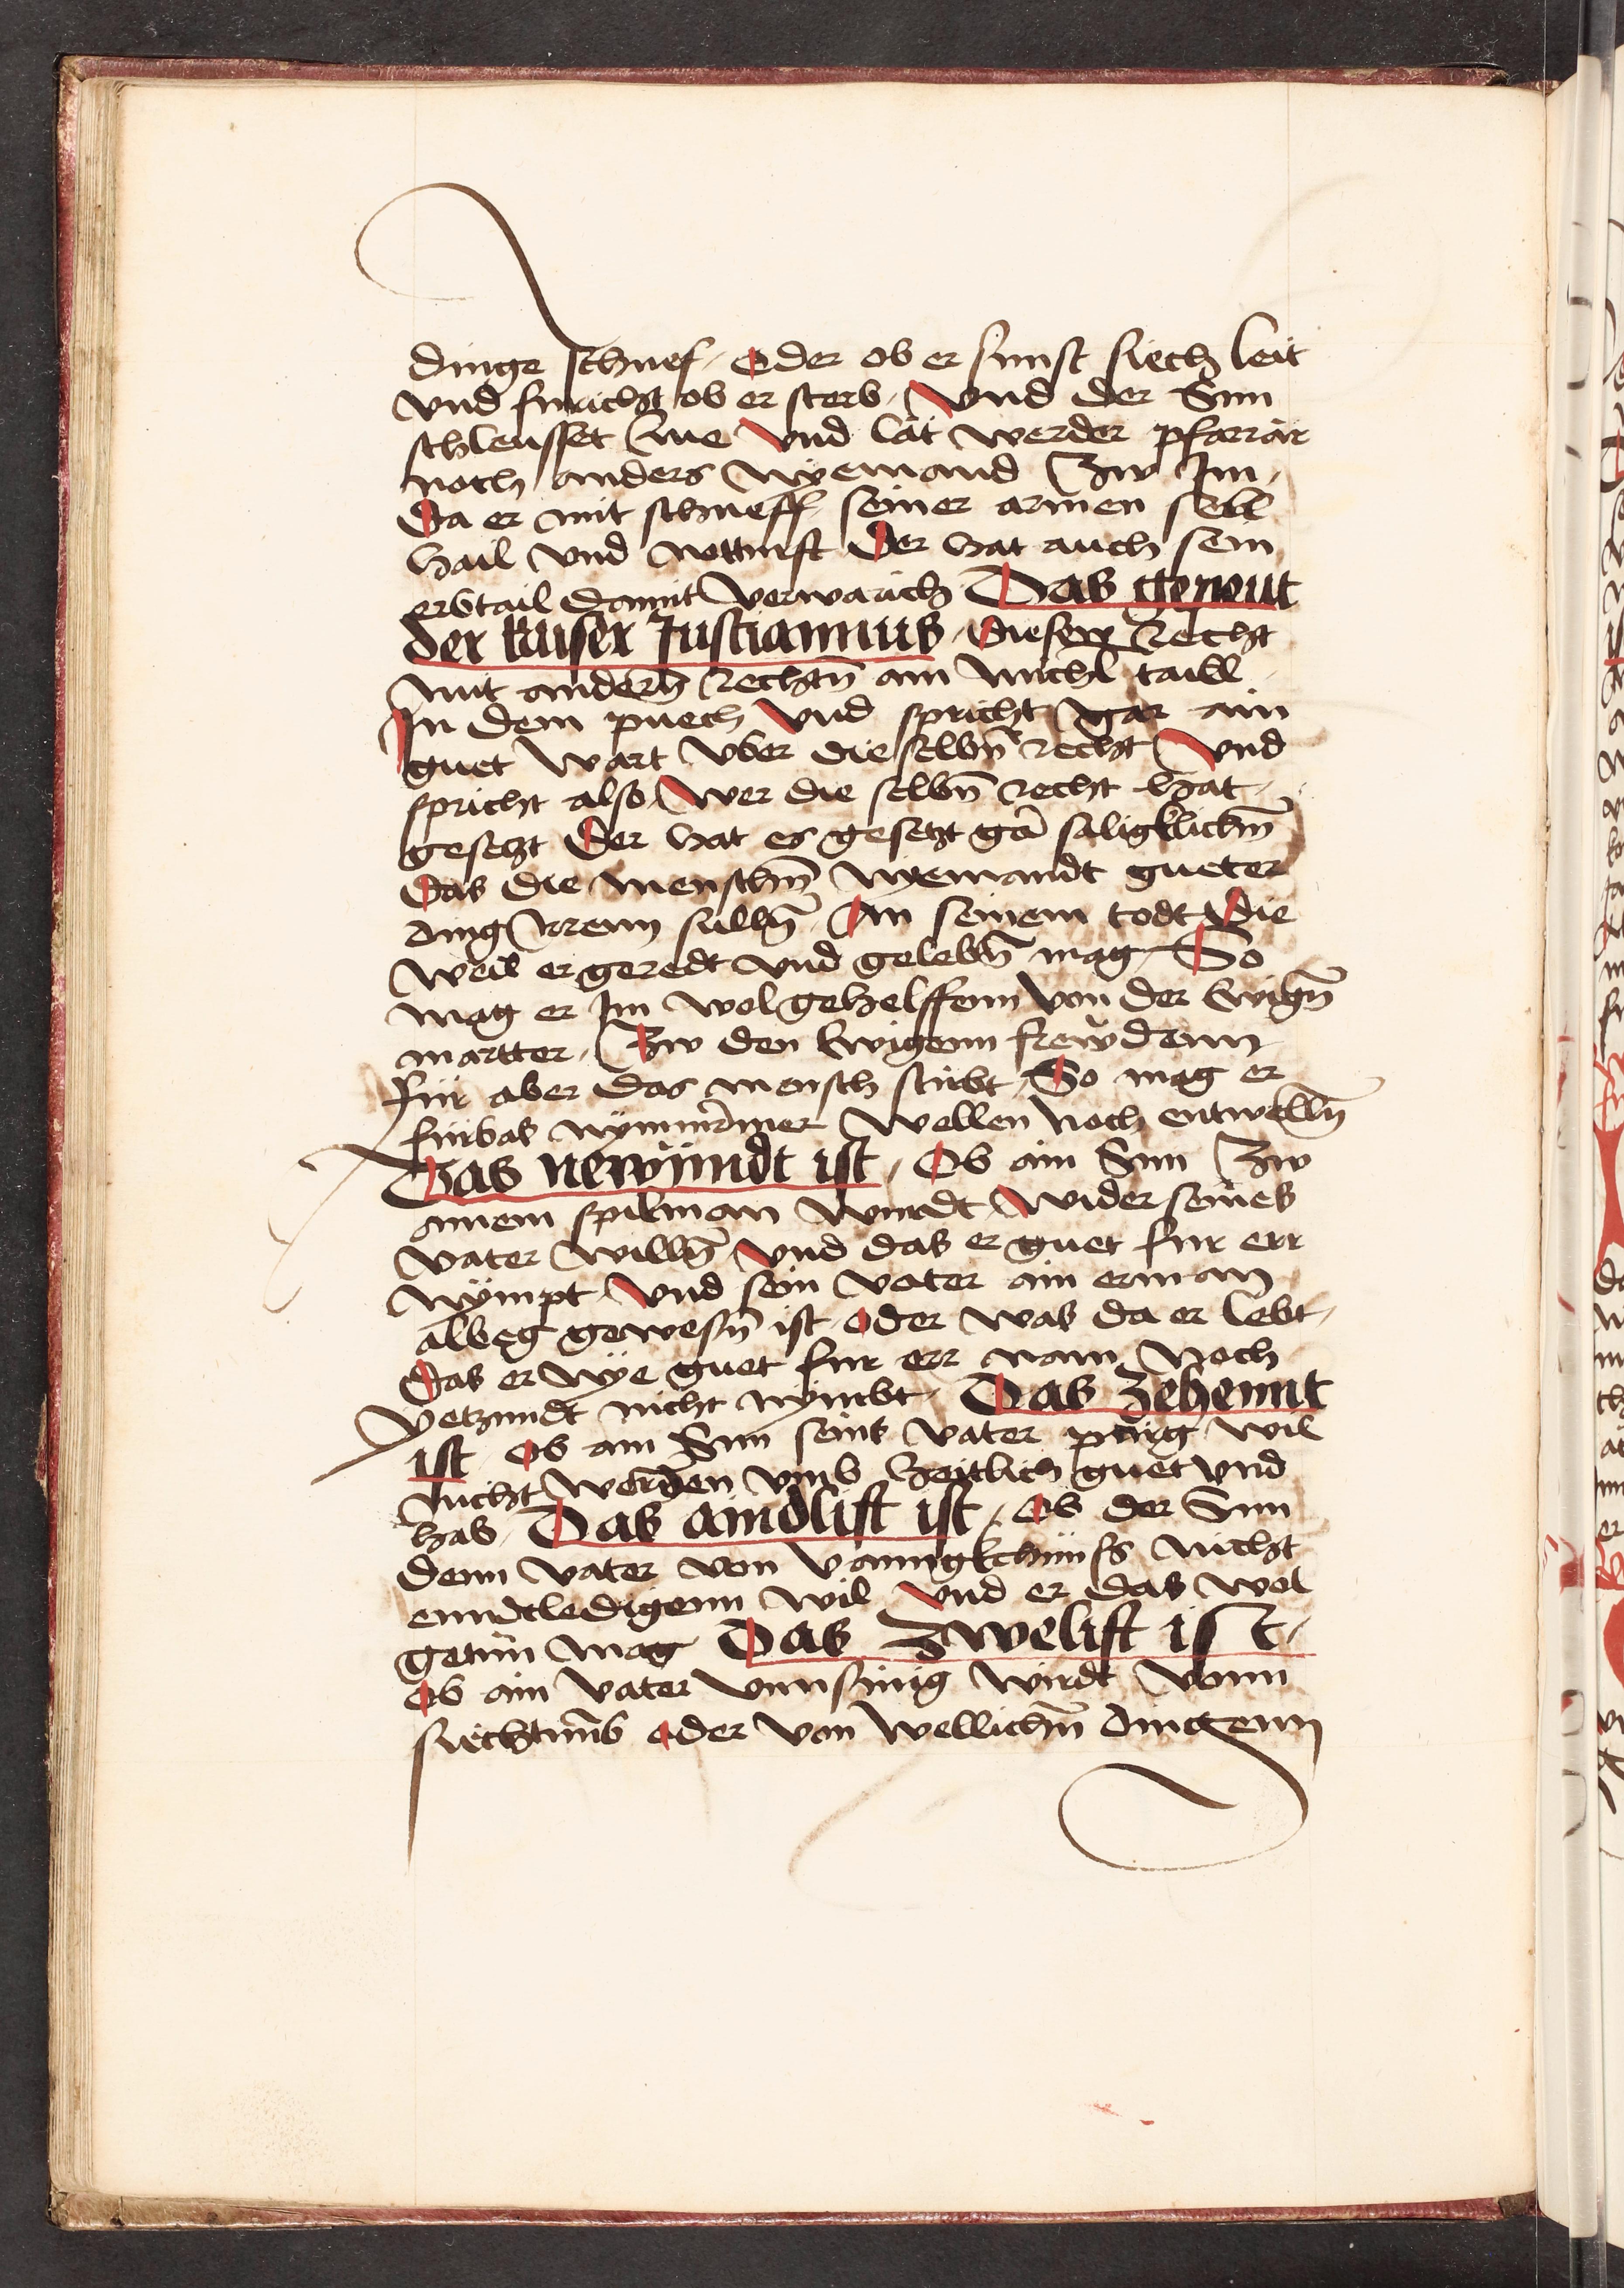 dinge schuef / Oder ob er sunst siech leit
vnd furicht ob er sterb / Vnd der Sun
schleusset Inne Vnd lät weder pfarrär
noch anders nyemand Zw Im /
Da er mit schueff seiner armen sell
hail vnd notturft Der hat auch sein
erbtail damit verwarich Das gepeut
der kaiser Justiannus / dieser recht
mit andern̄ rechtn̄ ain michl taill
In dem puech Vnd spricht gar ain
guet wart vber die selbn̄ recht Vnd
spricht also / Wer die selbn̄ recht hat /
gesetzt Der hat es gesetzt gar saligklichn̄
Das die menschn̄ nyemandt gueter
ding Irrenn sulln̄ / An seinem todt Die
weil er geredt vnd gelebn̄ mag / So
mag er Im wol gehelffenn von der Ewign̄
martter / Zw den Ewigenn frewdenn
für aber das mensch stirbt / So mag er
fürbas nymmermer wellen noch entwelln̄
Das newündt ist / Ob ain Sun Zw
ainem spilman wirdt / Wider seines
vater willn̄ / Vnd das er guet fur err
nympt / Vnd sein vater ain erman
albeg gewesn̄ ist / oder was da er lebt /
Das er nye guet fur err nam noch
yetzundt nicht nymbt / Das Zehennt
ist / Ob ain Sun seins vater pürig wil
nicht werden vmb Zeitlich guet vnd
hab / Das aindlift ist / Ob der Sun
denn vater von vanngkchnüss nicht
enndtledigenn wil Vnd er das wol
getun mag / Das Zwelift ist /
Ob ain vater vnnsinig wirdt vonn
siechtumb oder von wellichn̄ dingenn